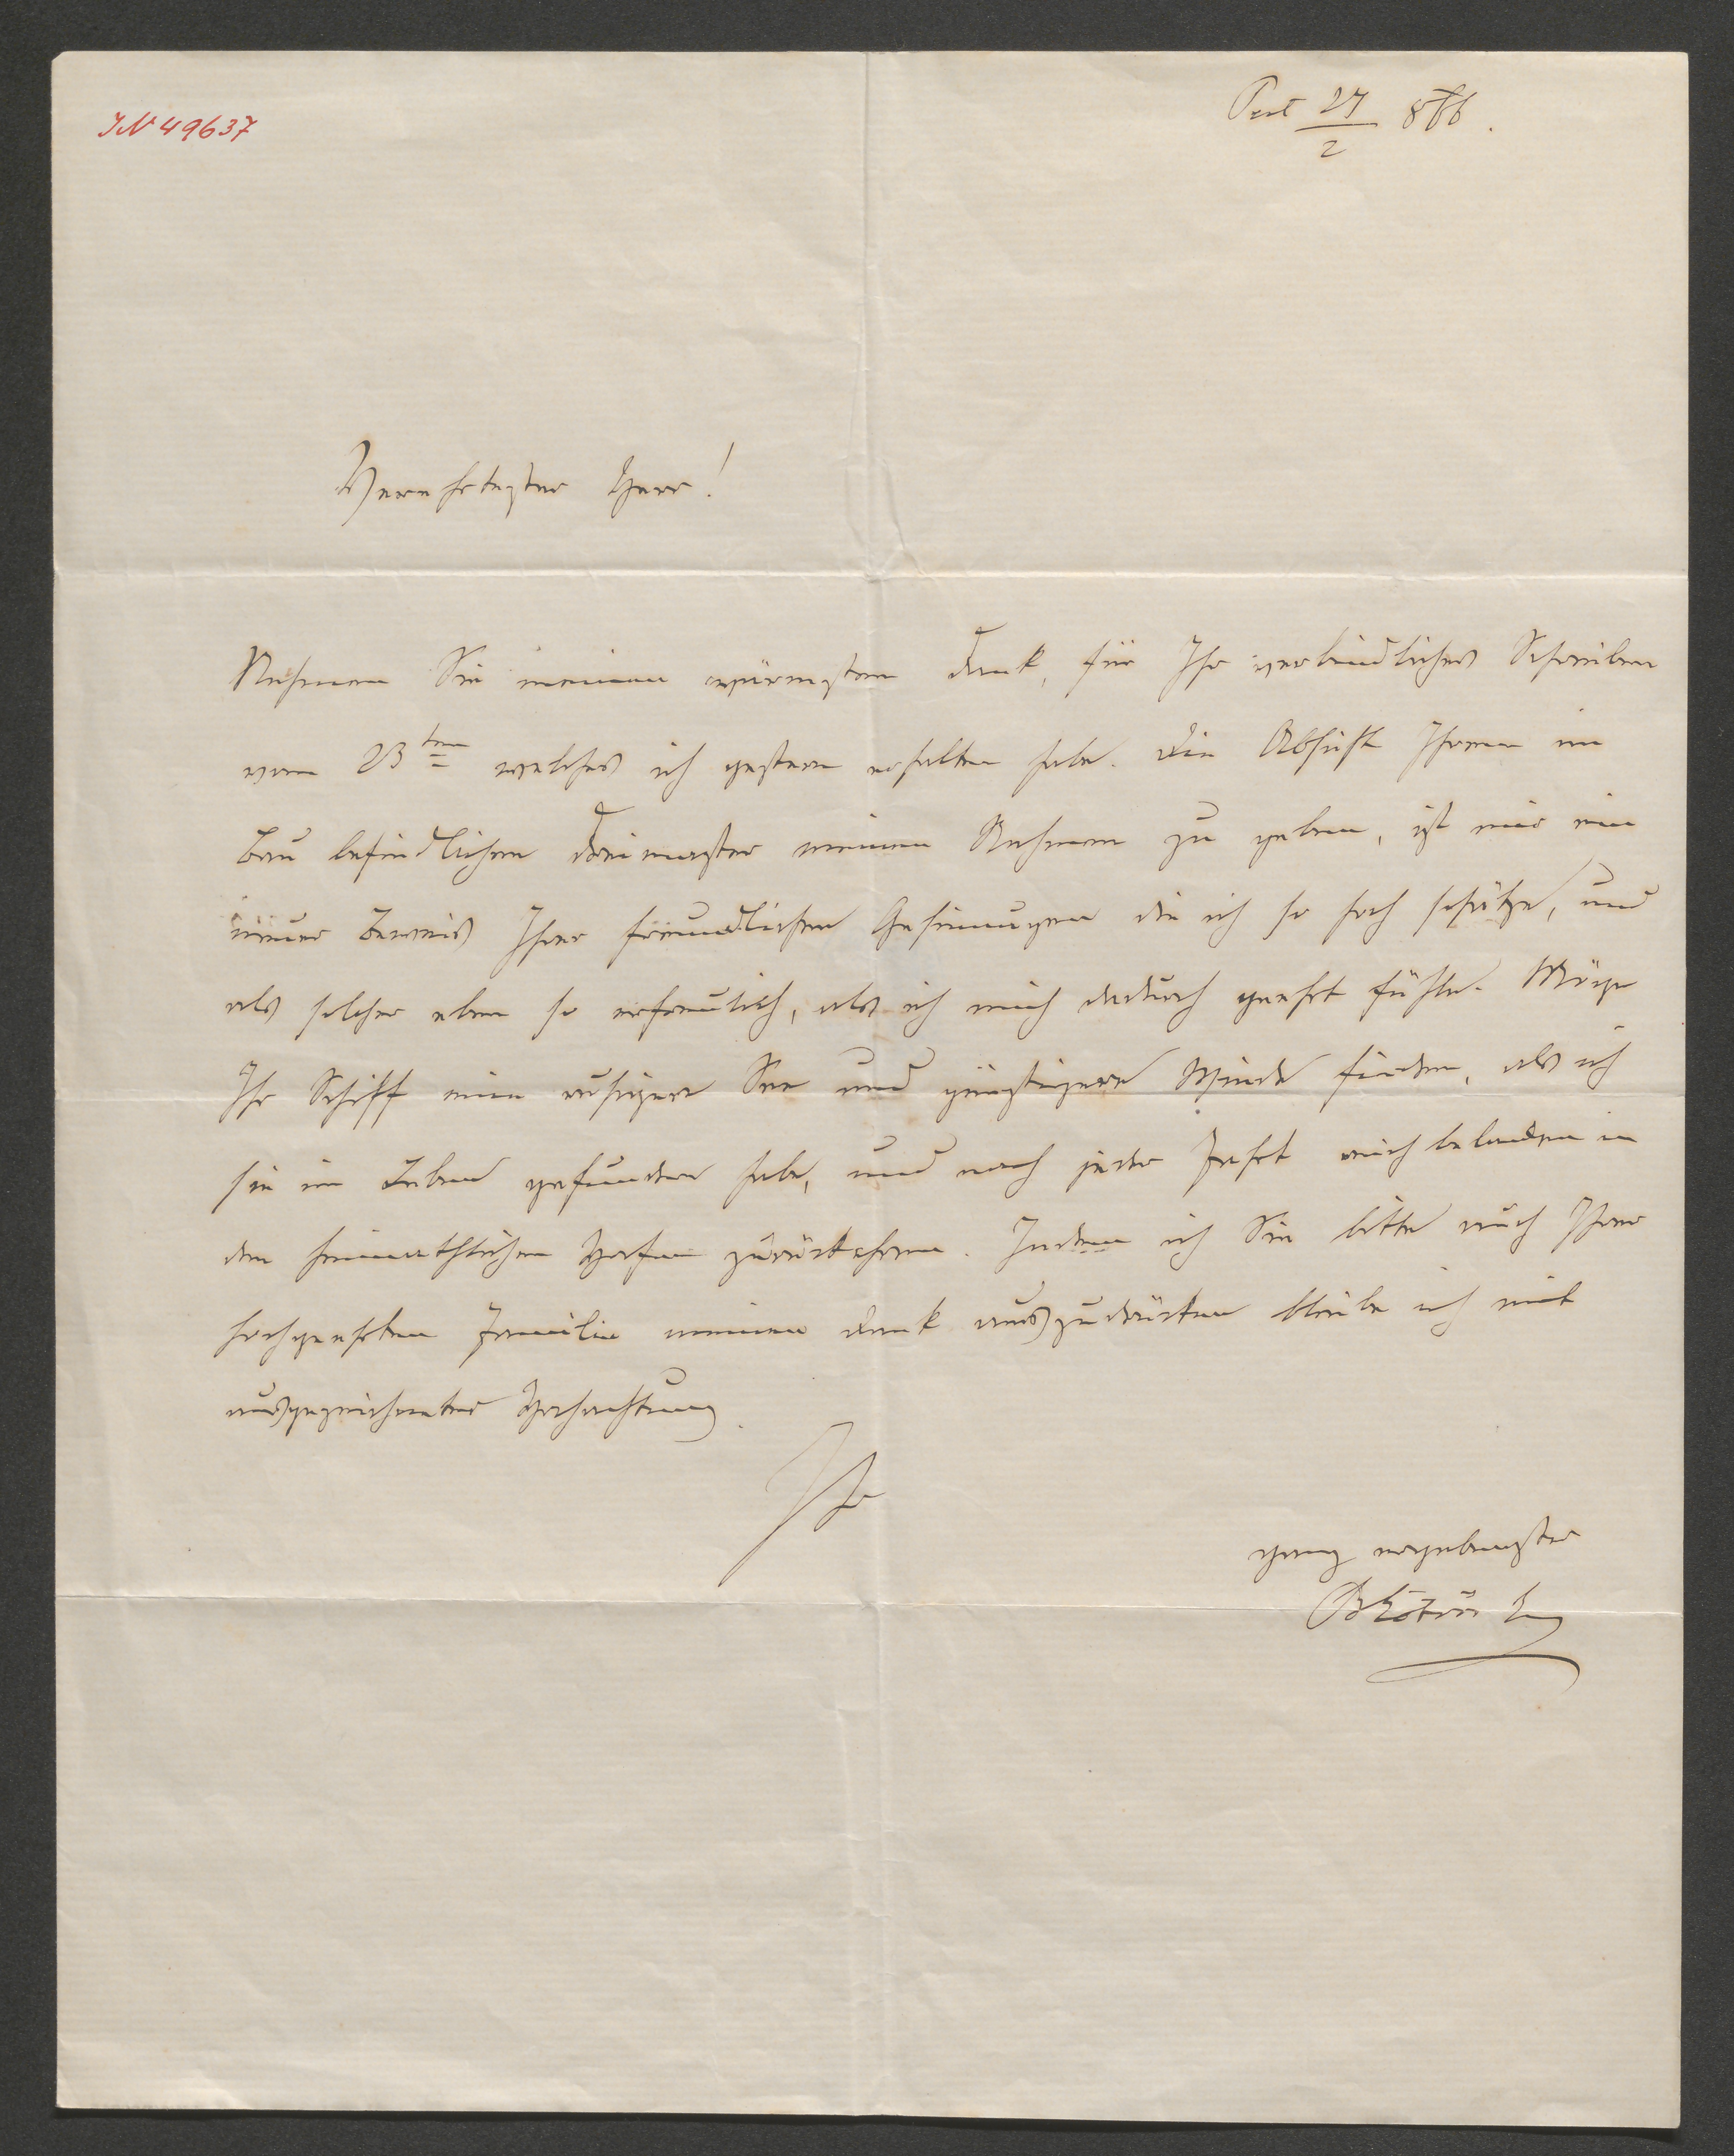 IN 49637
Pest 27/2 866.
Verehrtester Herr!
Nehmen Sie meinen wärmsten Dank, für Ihr verbindliches Schreiben
vom 23ten welches ich gestern erhalten habe. Die Absicht Ihrem im
Bau befindlichen Dreimaster meinen Nahmen zu geben, ist mir ein
neuer Beweis Ihrer freundlichen Gesinnungen die ich so hoch schätze, und
als solcher eben so erfreulich, als ich mich dadurch geehrt fühle. Möge
Ihr Schiff eine ruhigere See und günstigere Winde finden, als ich
sie im Leben gefunden habe, und nach jeder Fahrt reich beladen in
den heimathlichen Hafen zurückkehren. Indem ich Sie bitte auch Ihrer
hochgeehrten Familie meinen Dank auszudrücken bleibe ich mit
ausgezeichneter Hochachtung.
Ihr
ganz ergebenster
B Eötvös